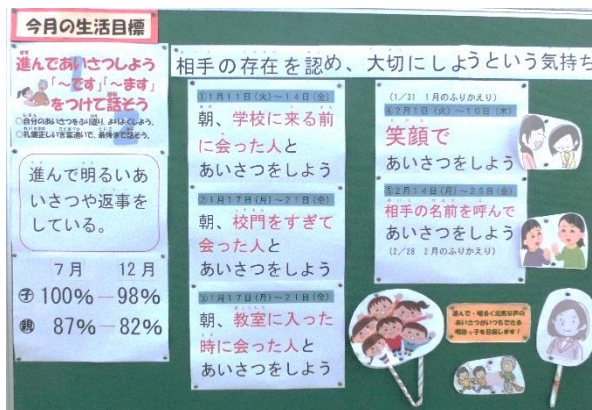 今月の生活目標
進んであいさつしよう
「～です」「～ます」
をつけて話そう
○自分のあいさつをふり返り、よりよくしよう。
○礼儀正しい言葉遣いで、最後まで話そう。
進んで明るいあ
いさつや返事を
している。
7月 12月
子 100%―98%
親 87%―82%
相手の存在を認め、大切にしようという気持ち
①1月11日(火)～14日(金)
朝、学校に来る前
に会った人と
あいさつをしよう
②1月17日(月)～21日(金)
朝、校門をすぎて
会った人と
あいさつをしよう
③1月17日(月)～21日(金)
朝、教室に入った
時に会った人と
あいさつをしよう
(1/31 1月のふりかえり)
④2月1日(火)～10日(木)
笑顔で
あいさつをしよう
⑤2月14日(月)～25日(金)
相手の名前を呼んで
あいさつをしよう
(2/28 2月のふりかえり)
進んで・明るく元気な声の
あいさつがいつもできる
っ子を目指します！